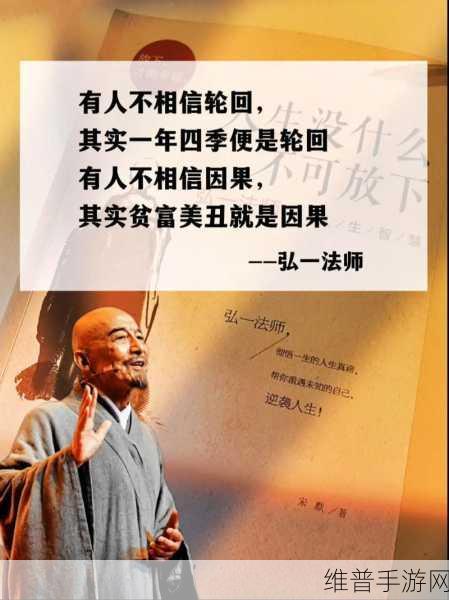 放下
有人不相信轮回，
其实一年四季便是轮回
有人不相信因果，
其实贫富美丑就是因果
——弘一法师
人生没什么
不可放下
生/智/慧
弘一法师，
彻悟一生的人生真谛，
帮你重遇未知的自己，
逆袭人生！
宋默/著
维普手游网